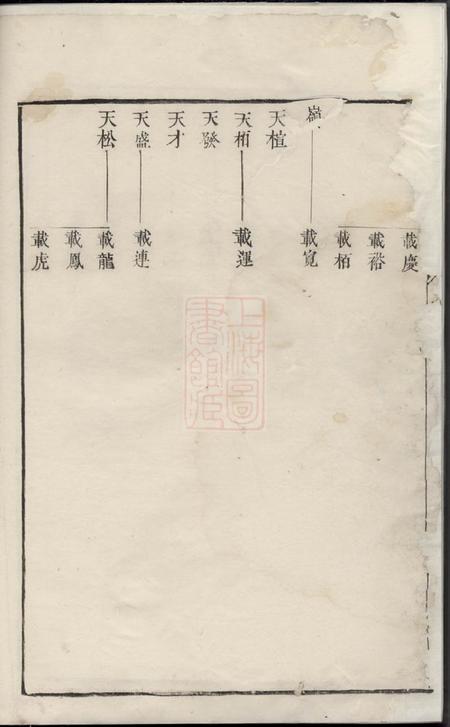 載慶
載裕
載栢
嶺
載寬
天楦
天栢
載運
天發
天才
天盛
載連
天松
載龍
載鳳
載虎
上海圖書館藏